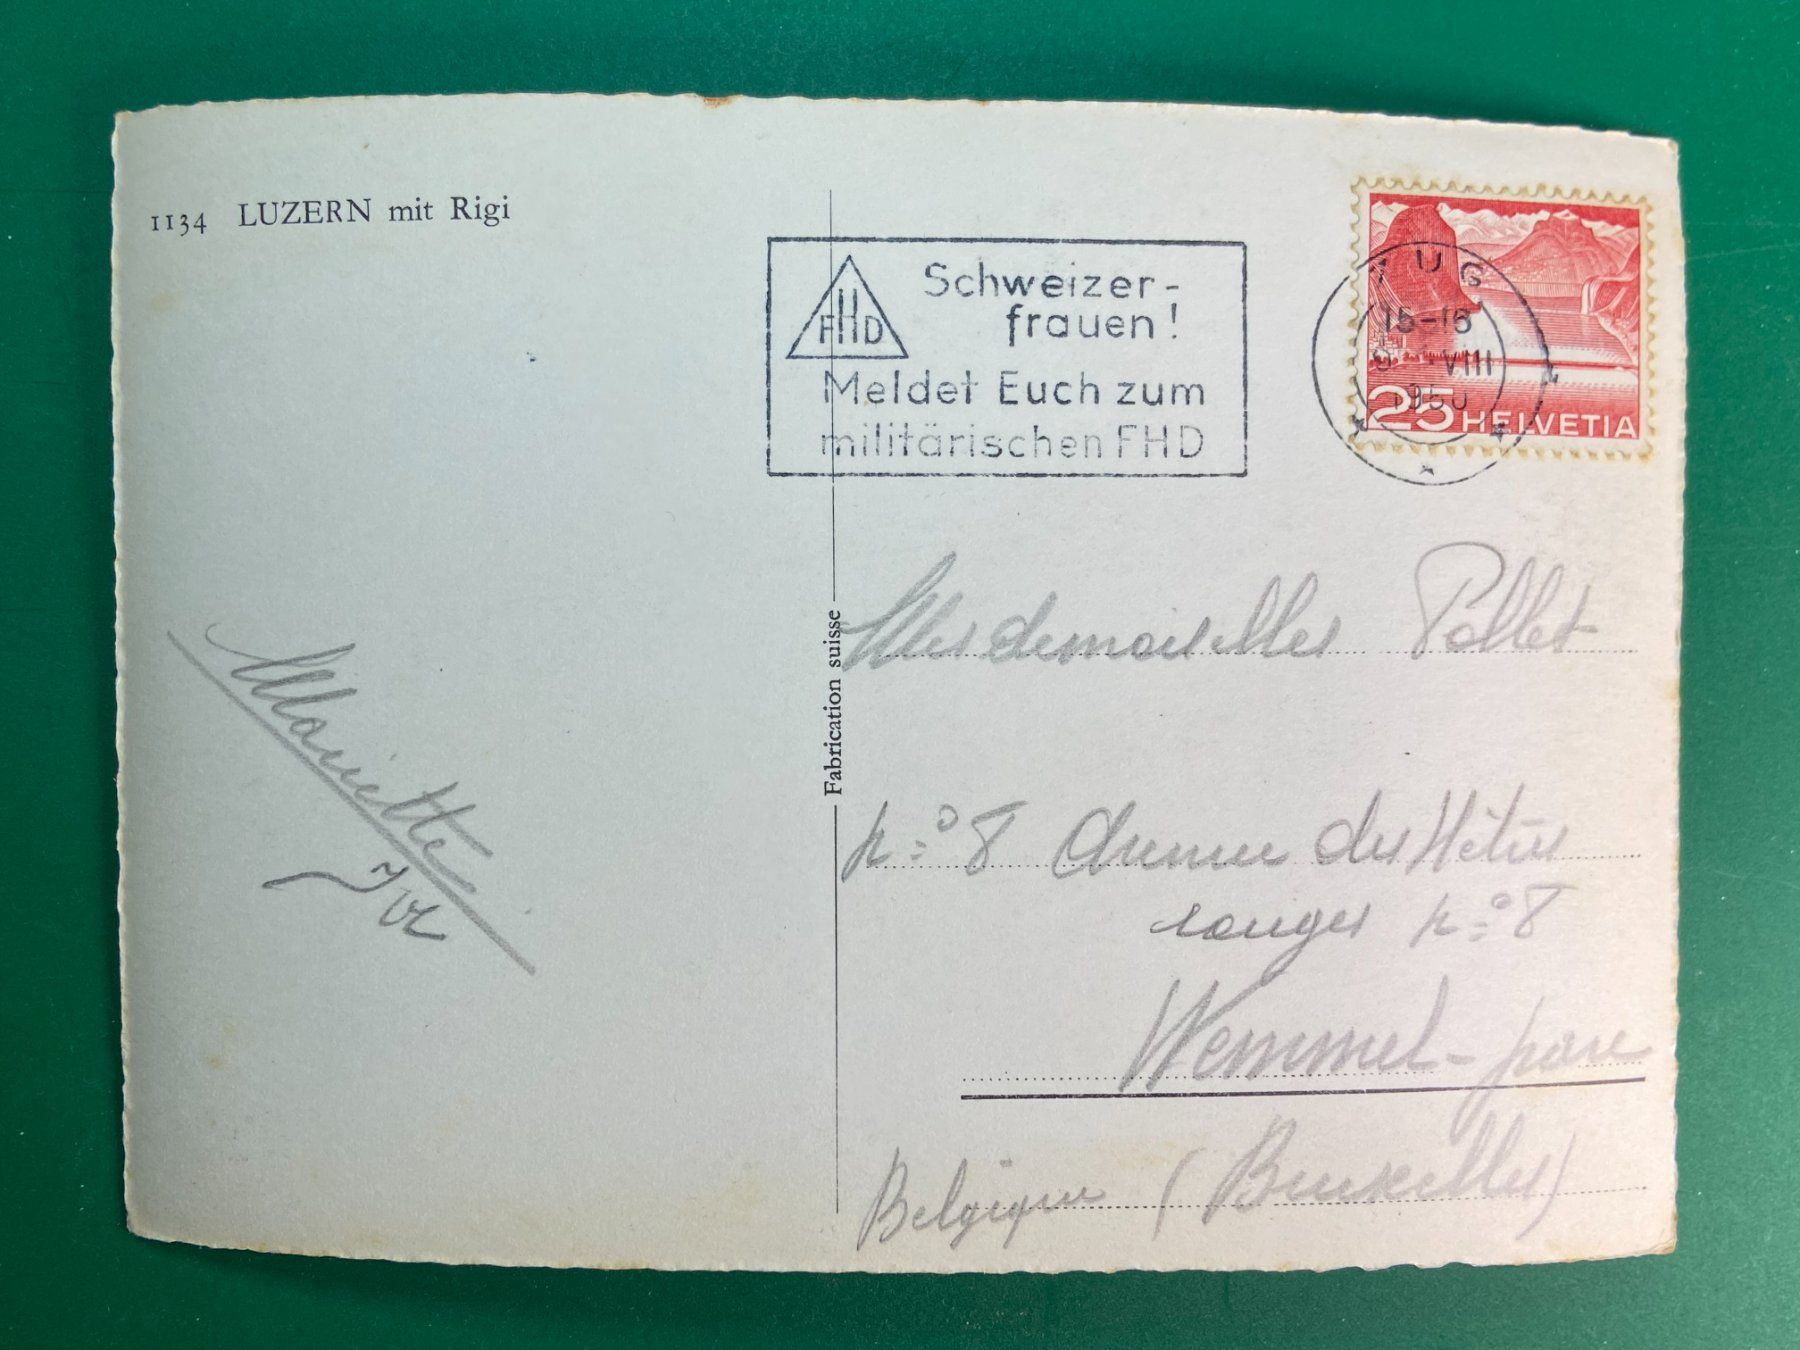 1134 LUZERN mit Rigi
FHD
Schweizer-
frauen!
Meldet Euch zum
militärischen FHD
ZUG
15-16
VIII
1950
25 HELVETIA
Fabrication suisse
Mariette
Mesdemoiselles Pollet
n.º 8 Avenue des Hêtres
rouges n.º 8
Wemmel-parc
Belgique (Bruxelles)